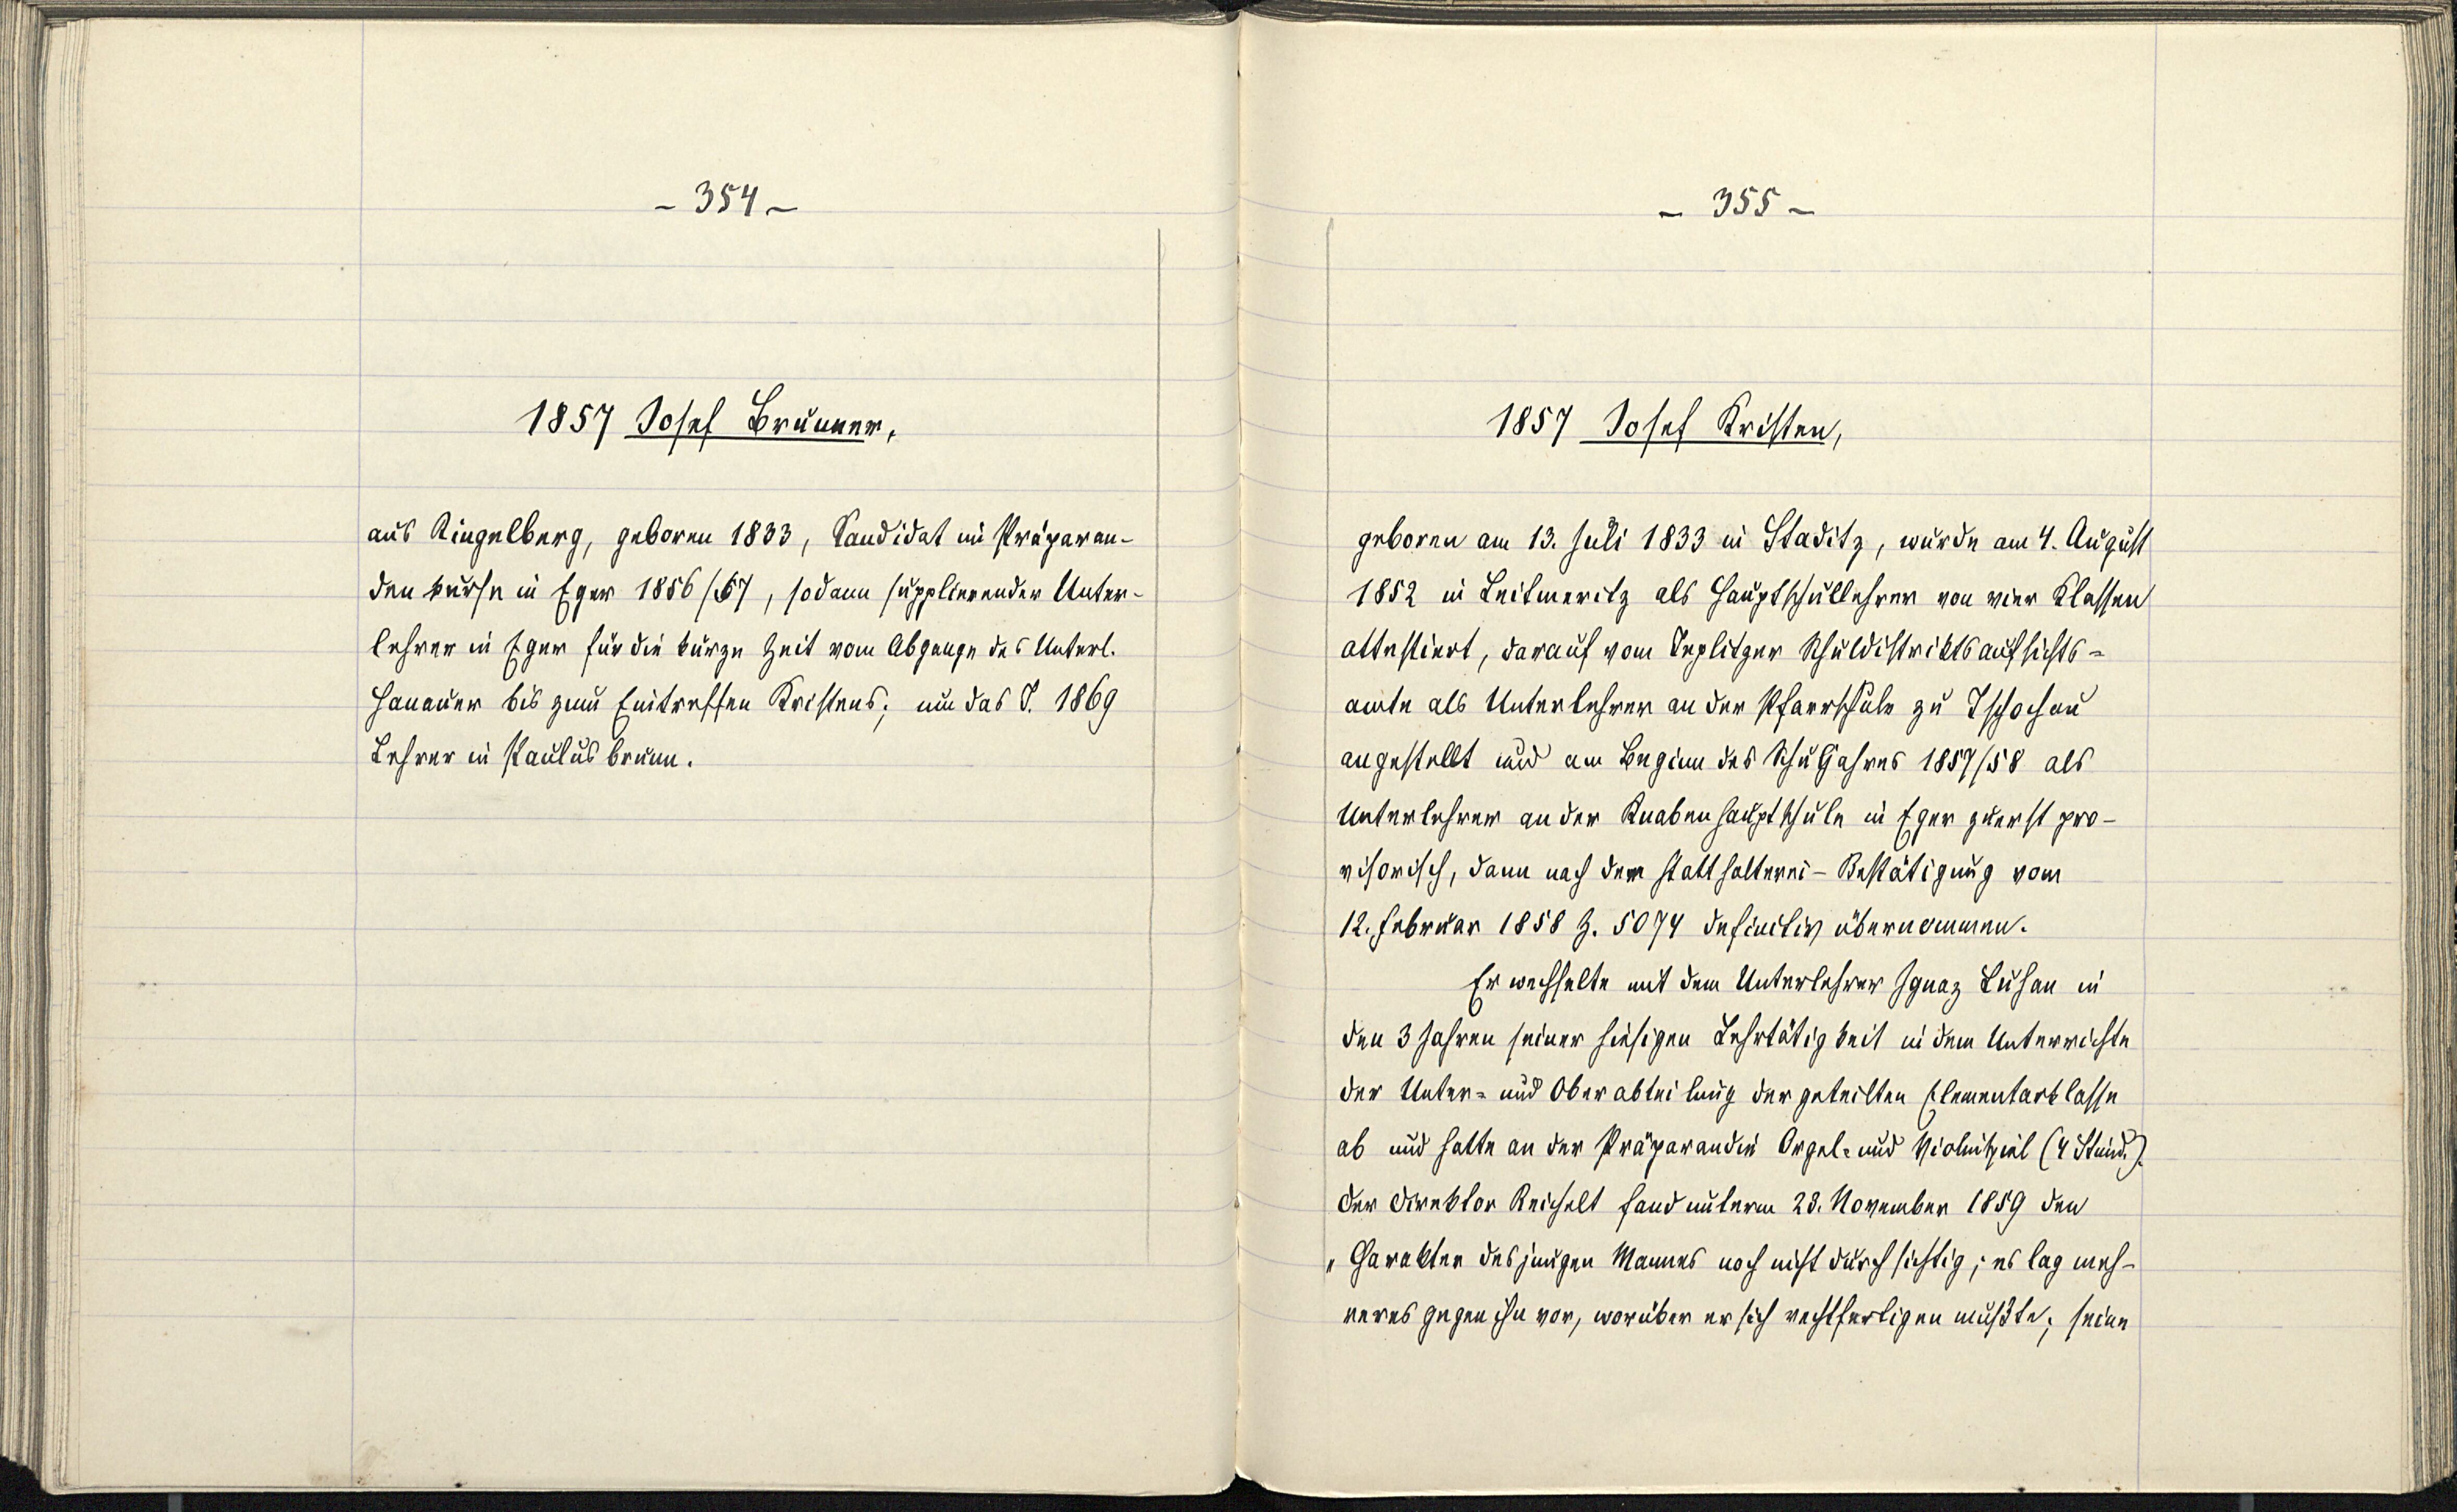 - 354 -
1857 Josef Brunner,
aus Ringelberg, geboren 1833, Kandidat im Präparan-
denkurse in Eger 1856/57, sodann supplierender Unter-
lehrer in Eger für die kurze Zeit vom Abgange des Unterl.
Hanauer bis zum Eintreffen Kristens; um das J. 1869
Lehrer in Paulusbrunn.
- 355 -
1857 Josef Kristen,
geboren am 13. Juli 1833 in Staditz, wurde am 4. August
1852 in Leitmeritz als Hauptschullehrer von vier Klassen
attestiert, darauf vom Teplitzer Schuldistriktsaufsichts=
amte als Unterlehrer an der Pfarrschule zu Tschochau
angestellt und am Beginn des Schuljahres 1857/58 als
Unterlehrer an der Knabenhauptschule in Eger zuerst pro-
visorisch, dann nach der Statthalterei-Bestätigung vom
12. Februar 1858 Z. 5074 definitiv übernommen.
Er wechselte mit dem Unterlehrer Ignaz Luhan in
den 3 Jahren seiner hiesigen Lehrtätigkeit in dem Unterrichte
der Unter= und Oberabteilung der geteilten Elementarklasse
ab und hatte an der Präparandie Orgel= und Violinspiel (4 Stund.).
Der Direktor Reichelt fand unterm 28. November 1859 den
„Charakter des jungen Mannes noch nicht durchsichtig; es lag meh-
reres gegen ihn vor, worüber er sich rechtfertigen mußte; seine